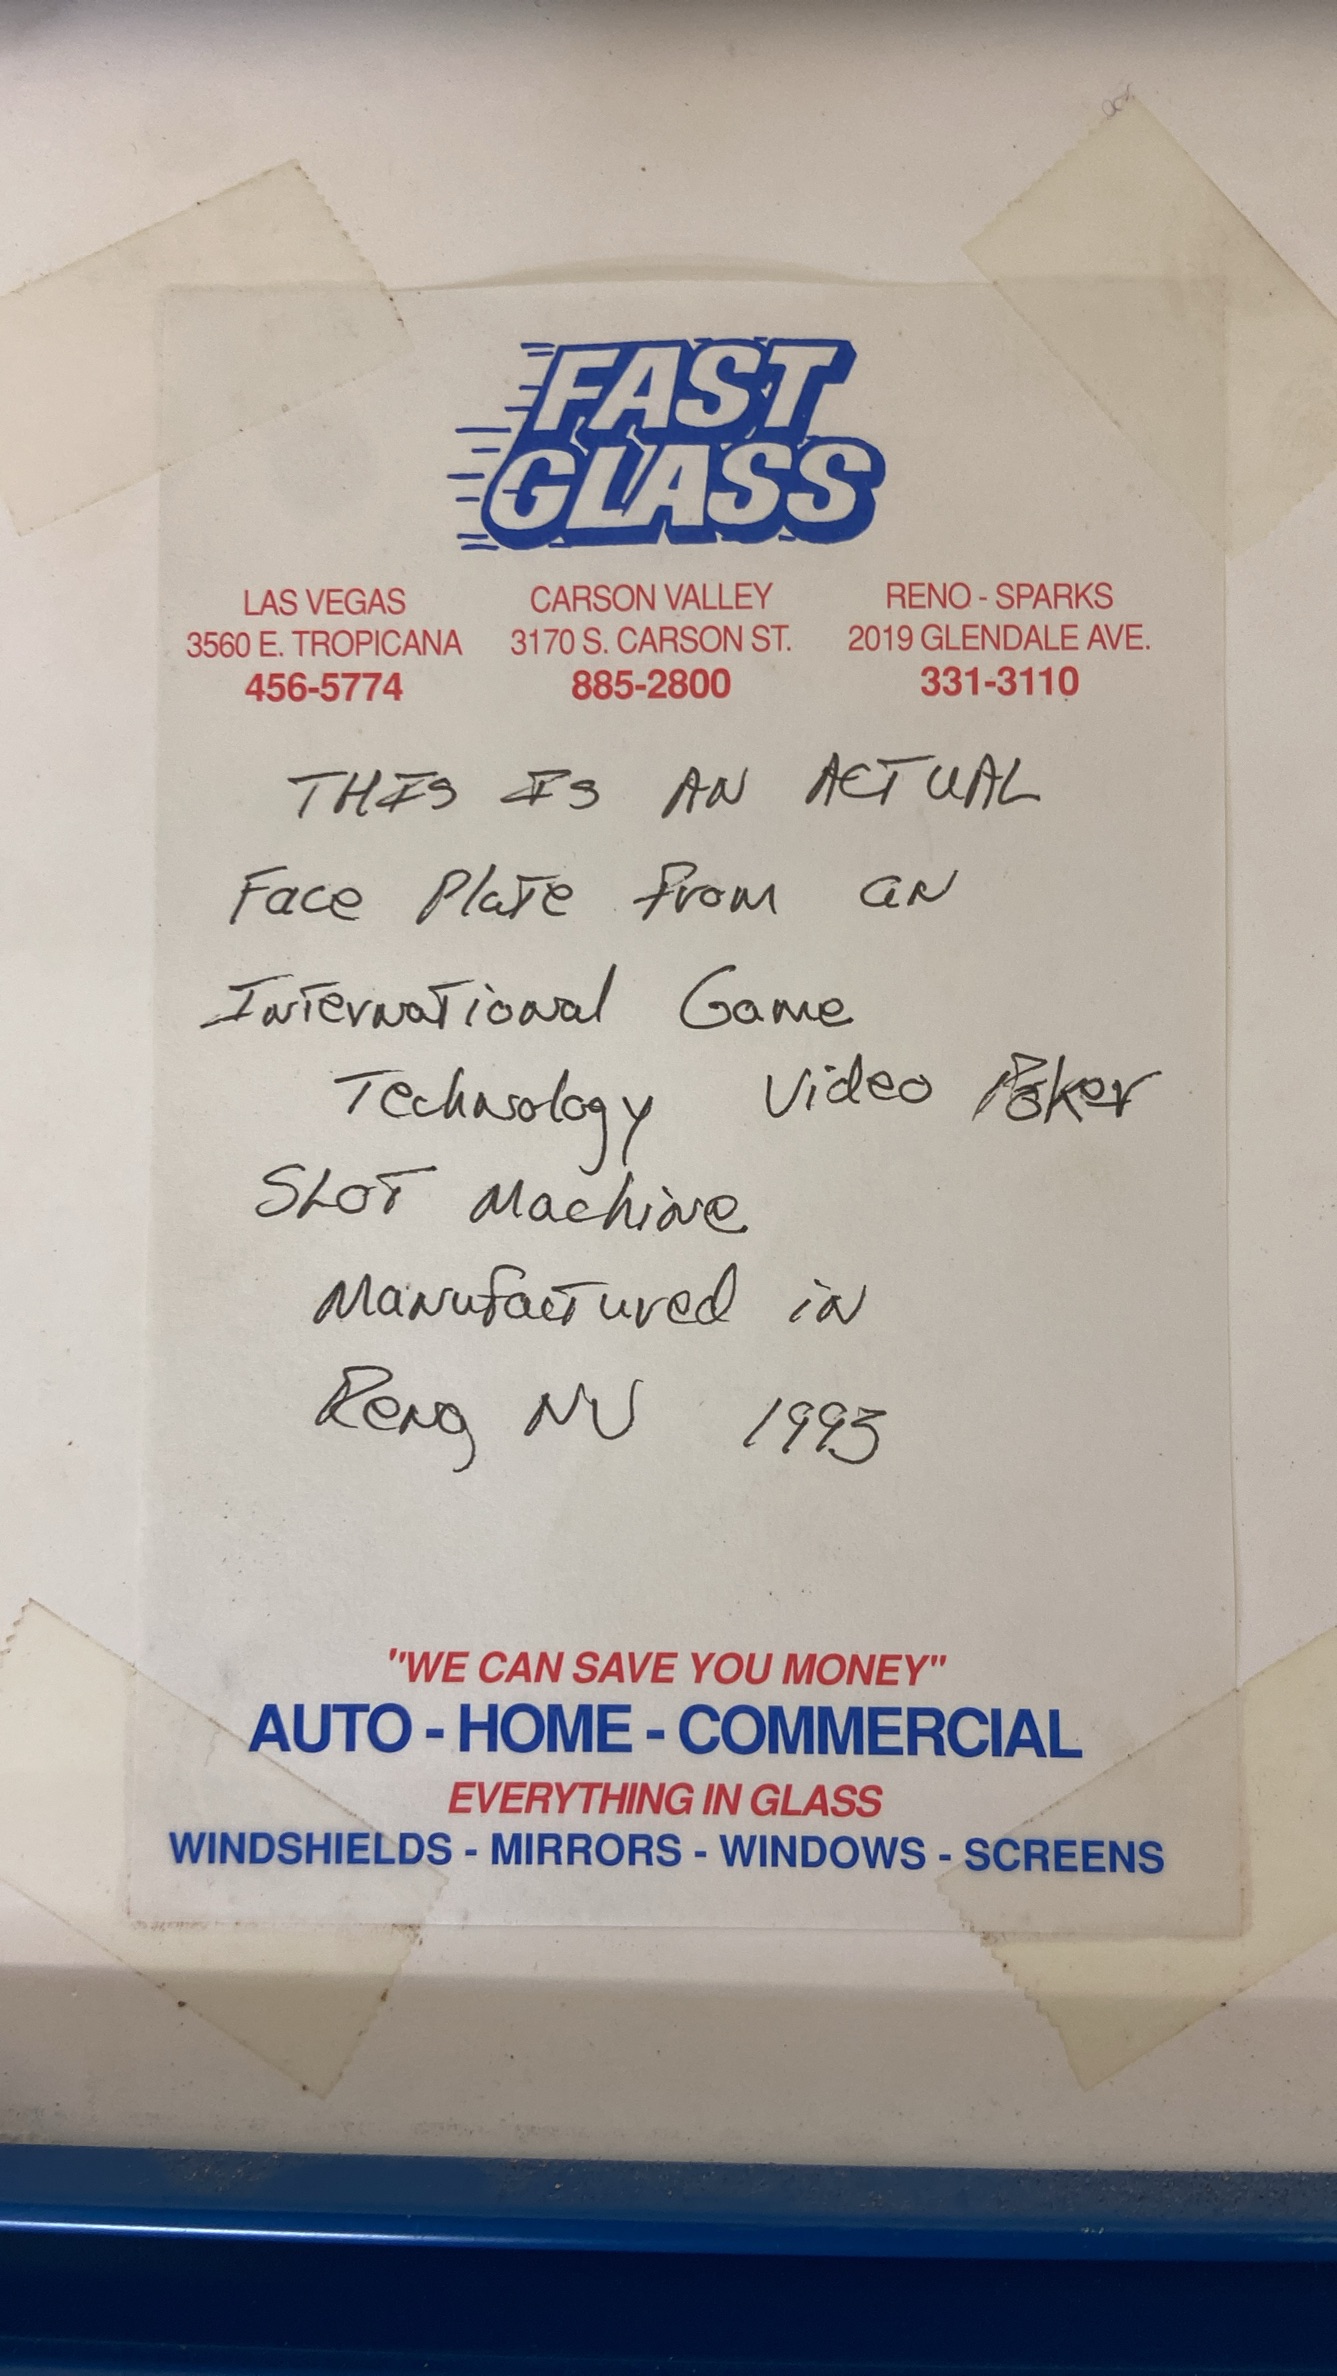 FAST
GLASS
LAS VEGAS CARSON VALLEY RENO - SPARKS
3560 E. TROPICANA 3170 S. CARSON ST. 2019 GLENDALE AVE.
456-5774 885-2800 331-3110
THIS IS AN ACTUAL
Face Plate from an
International Game
Technology Video Poker
SLOT Machine
Manufactured in
Reno, NV 1993
"WE CAN SAVE YOU MONEY"
AUTO - HOME - COMMERCIAL
EVERYTHING IN GLASS
WINDSHIELDS - MIRRORS - WINDOWS - SCREENS